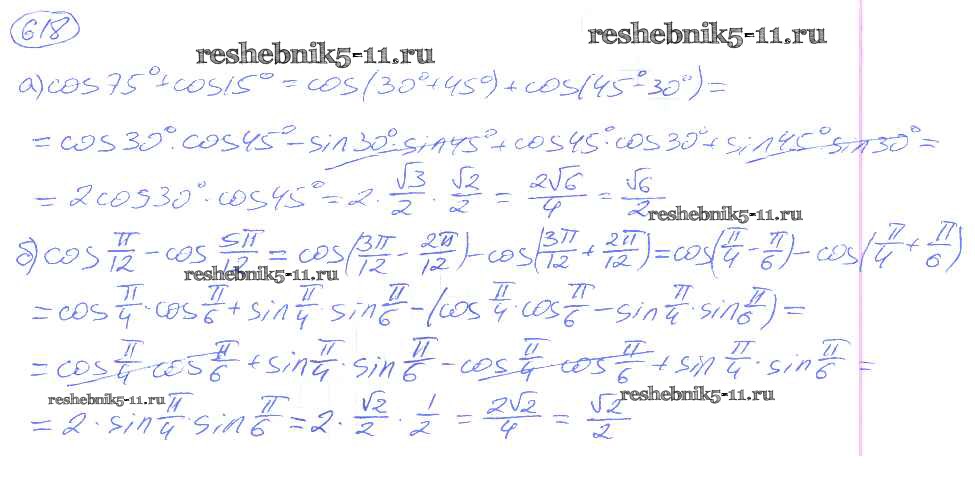 618
reshebnik5-11.ru
reshebnik5-11.ru
а) cos75° + cos15° = cos(30° + 45°) + cos(45° - 30°) =
= cos30° · cos45° - sin30° · sin45° + cos45° · cos30° + sin45° sin30° =
= 2cos30° · cos45° = 2 · √3/2 · √2/2 = 2√6/4 = √6/2
reshebnik5-11.ru
б) cos π/12 - cos 5π/12 = cos(3π/12 - 2π/12) - cos(3π/12 + 2π/12) = cos(π/4 - π/6) - cos(π/4 + π/6)
reshebnik5-11.ru
= cos π/4 · cos π/6 + sin π/4 · sin π/6 - (cos π/4 · cos π/6 - sin π/4 · sin π/6) =
= cos π/4 cos π/6 + sin π/4 · sin π/6 - cos π/4 cos π/6 + sin π/4 · sin π/6 =
reshebnik5-11.ru
reshebnik5-11.ru
= 2 · sin π/4 sin π/6 = 2 · √2/2 · 1/2 = 2√2/4 = √2/2